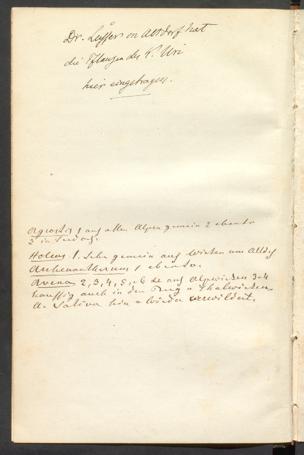 Dr. Lusser in Altdorf hat
die Pflanzen des Ct. Uri
hier eingetragen.
Agrostis 1 auf allen Alpen gemein 2 ebenso
3 in
Holcus 1. Sehr gemein auf Wiesen um Altdorf
Arrhenatherum 1 ebenso.
Avena 2, 3, 4, 5, 6 auf Alpwiesen 3-4
haüffig auch in den Berg u Thalwiesen
A. Sativa hin u Wieder verwildert.